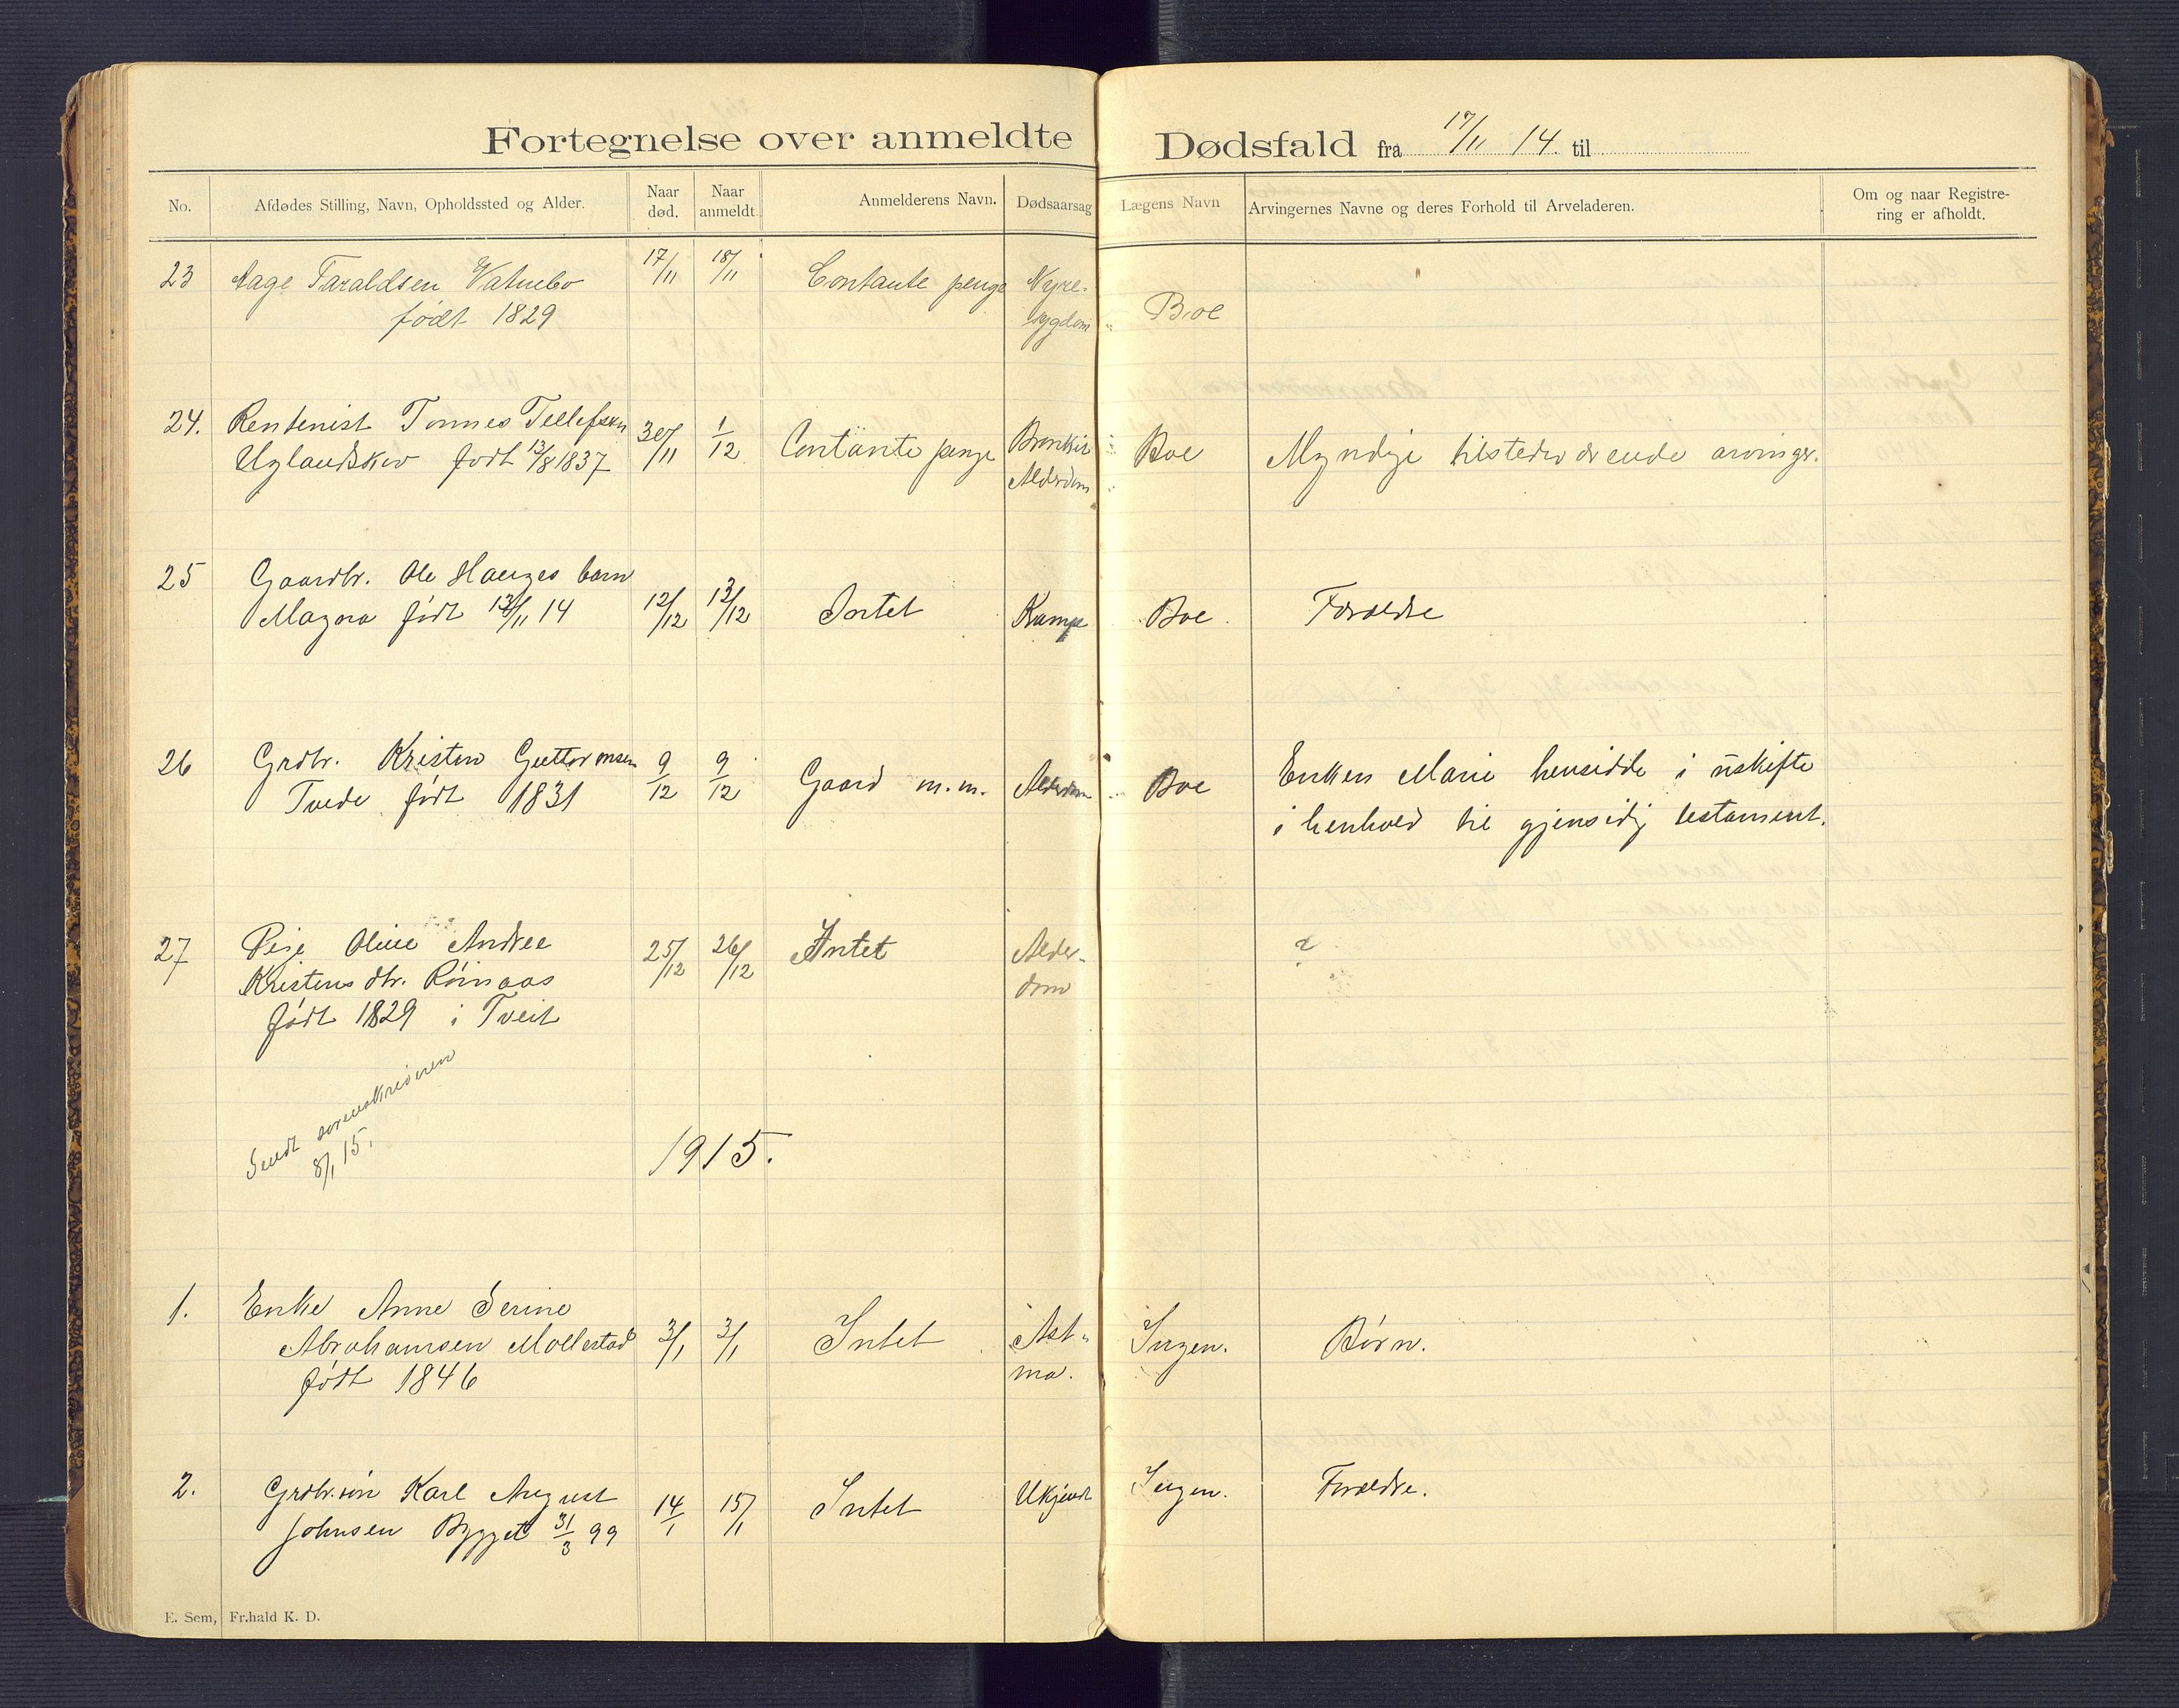 Fortegnelse over anmeldte Dødsfald fra 17/11 14. til
No. Afdødes Stilling, Navn, Opholdssted og Alder. Naar død. Naar anmeldt. Anmelderens Navn. Dødsaarsag Lægens Navn Arvingernes Navne og deres Forhold til Arveladeren. Om og naar Registrering er afholdt.
23 Aage Taraldsen Vatnebo 17/11 18/11 Contante penge Nyre-
født 1829 sygdom Boe
24. Rentenist Tønnes Tellefsen 30/11 1/12 Contante penge Bronkit Boe Myndige tilstedeværende arvinger.
Uglandskov født 13/8 1837 Alderdom
25 Gaardbr. Ole Hauges barn
Magna født 13/11 14 12/12 13/12 Intet Krampe Boe Forældre
26 Grdbr. Kristen Guttormsen 9/12 9/12 Gaard m.m. Alderdom Boe Enken Marie hensidde i uskifte
Tvede født 1831 i henhold til gjensidig testament.
27 Pige Oline Andrea 25/12 26/12 Intet Alder- ?
Kristensdtr. Røinaas dom
født 1829 i Tveit
Sendt sorenskriveren
8/1 15.
1915.
1. Enke Anne Serine
Abrahamsen Mollestad 3/1 3/1 Intet Ast- Ingen. Børn.
født 1846 ma.
2. Grdbr.søn Karl August 14/1 15/1 Intet Ukjendt Ingen. Forældre.
Johnsen Bygget 31/3 99
E. Sem, Fr.hald K. D.